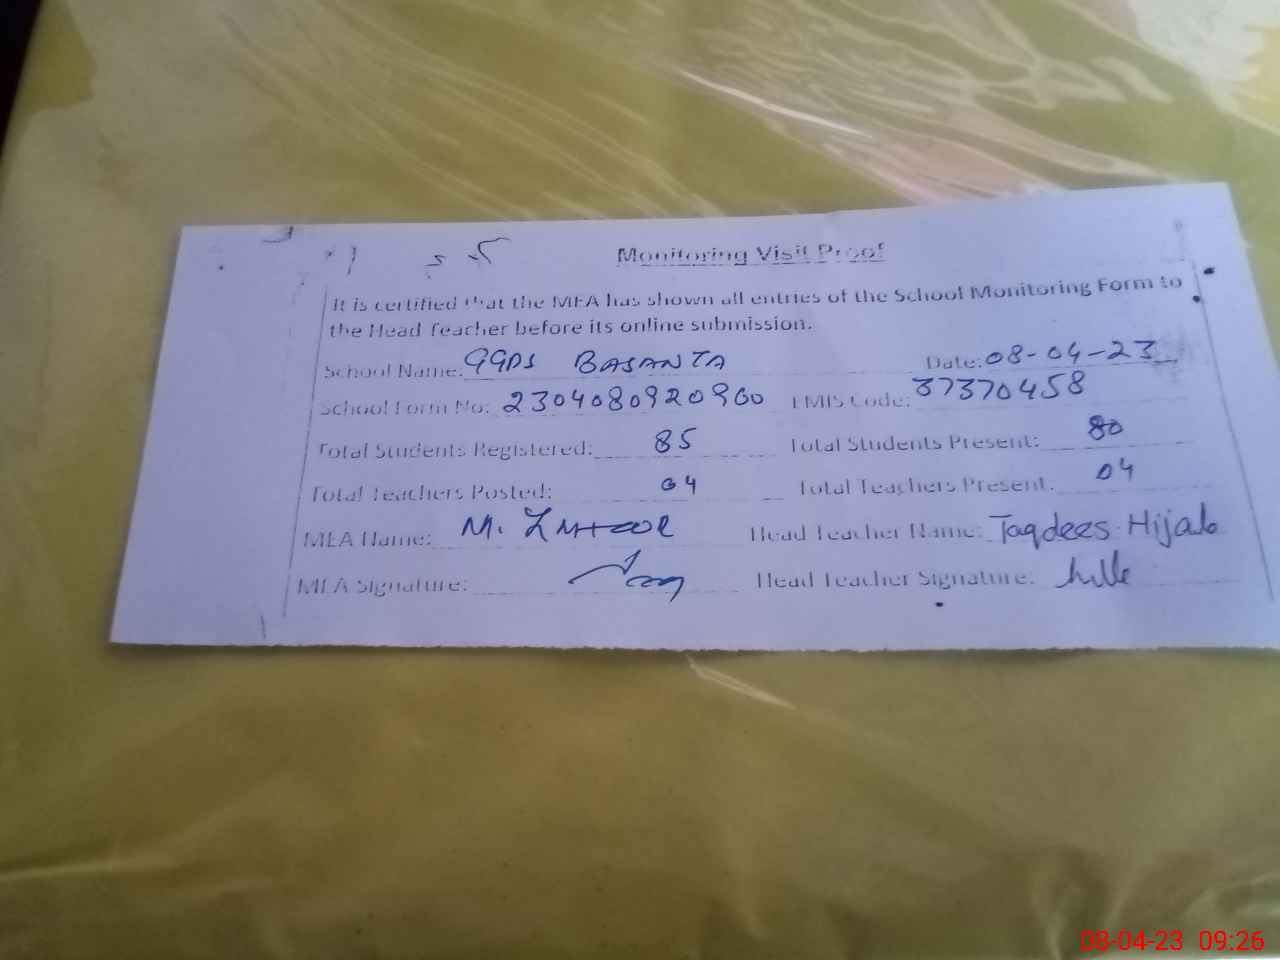 Monitoring Visit Proof
It is certified that the MEA has shown all entries of the School Monitoring Form to
the Head Teacher before its online submission.
School Name: GGPS BASANTA Date: 08-04-23
School Form No: 2304080920960 EMIS Code: 37370458
Total Students Registered: 85 Total Students Present: 80
Total Teachers Posted: 04 Total Teachers Present: 04
MEA Name: M. Head Teacher Name: Taqdees Hijab
MEA Signature: Head Teacher Signature:
08-04-23 09:26